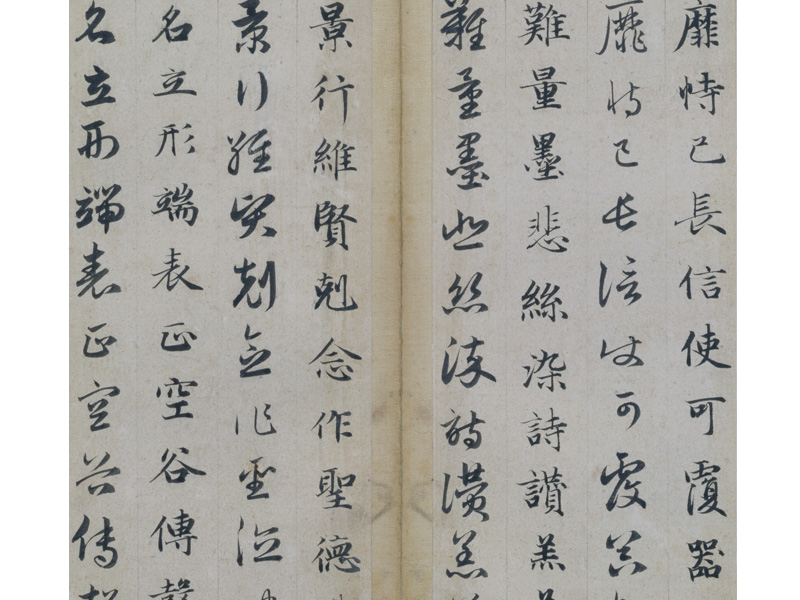 靡恃己長信使可覆器
靡恃己長信使可覆器
難量墨悲絲染詩讚羔
難量墨悲絲染詩讚羔
景行維賢剋念作聖德
景行維賢剋念作聖德
名立形端表正空谷傳
名立形端表正空谷傳